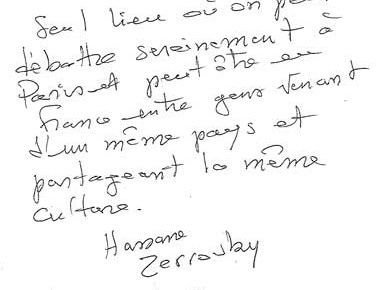 Seul lieu où on pe
débattre sereinement à
Paris et peut être en
France entre gens venant
d'un même pays et
partageant la même
culture.
Hassane
Zerrouky